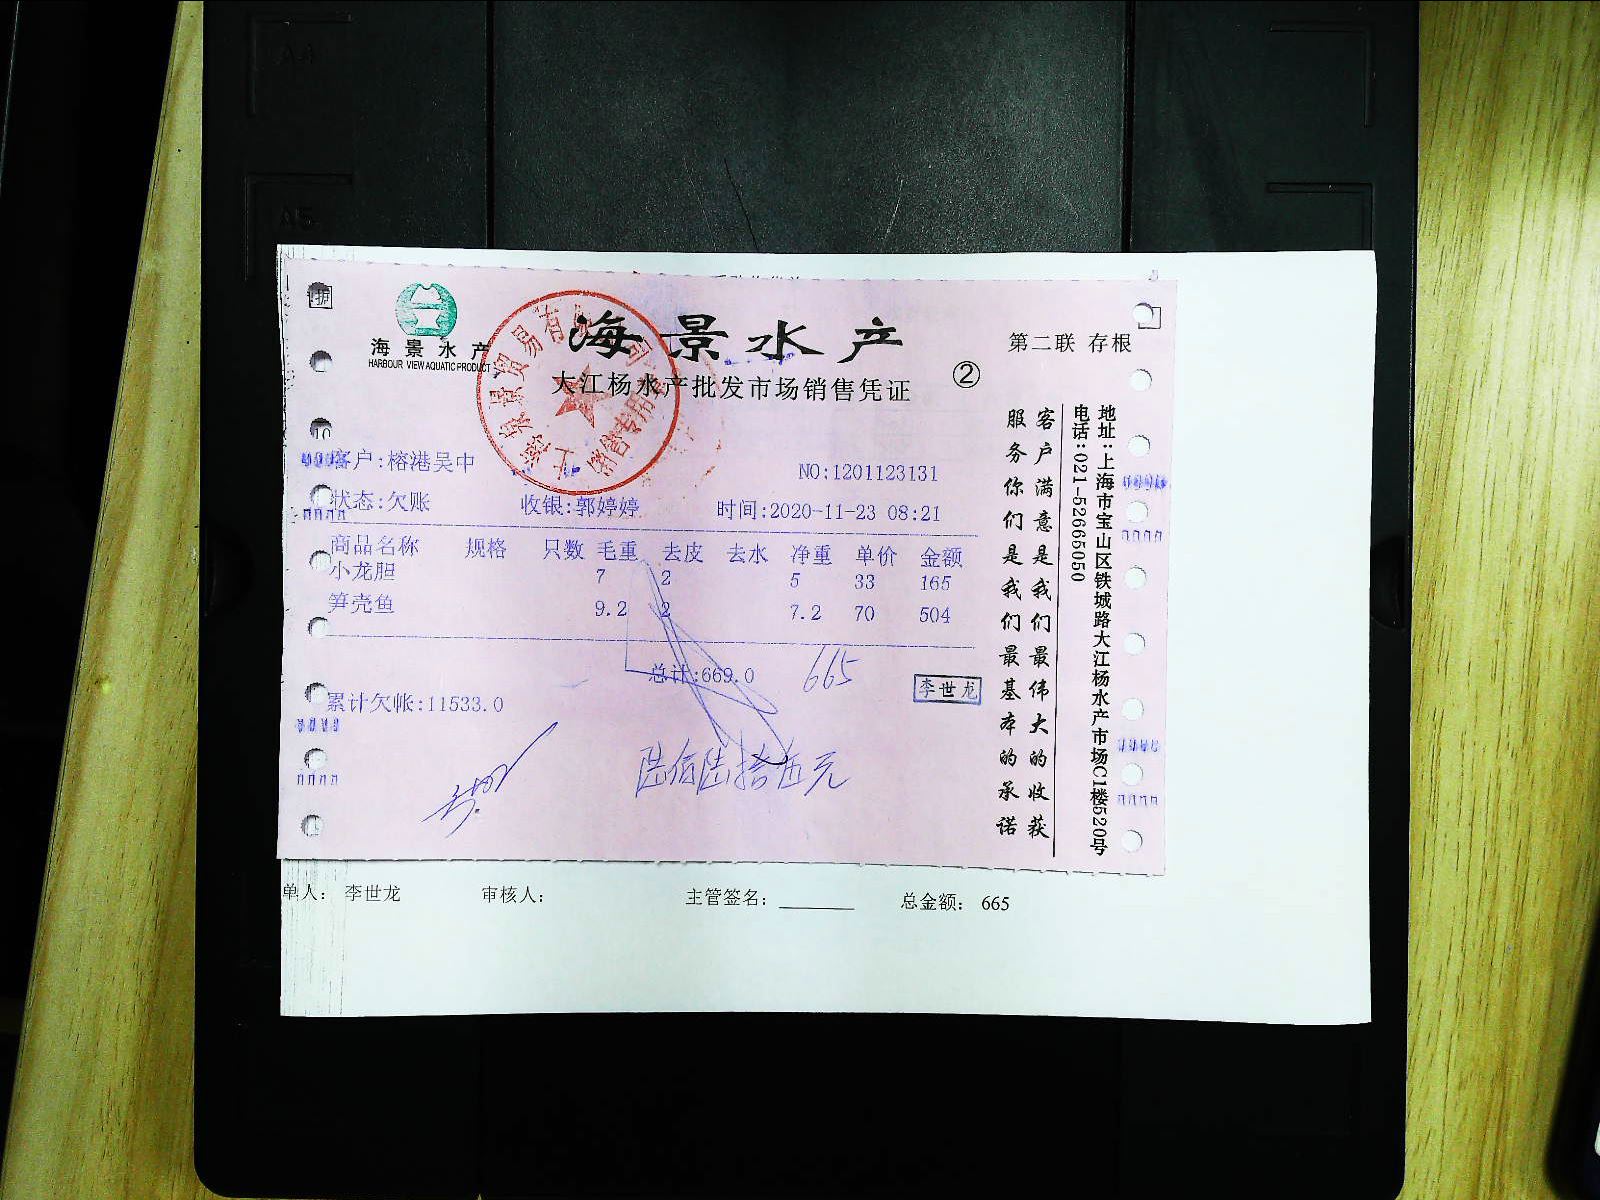 A4
A5
海景水产
HARBOUR VIEW AQUATIC PRODUCT
海景水产
大江杨水产批发市场销售凭证
②
第二联 存根
客户:榕港吴中
NO:1201123131
状态:欠账
收银:郭婷婷
时间:2020-11-23 08:21
商品名称 规格 只数 毛重 去皮 去水 净重 单价 金额
小龙胆 7 2 5 33 165
笋壳鱼 9.2 2 7.2 70 504
总计:669.0
665
李世龙
累计欠帐:11533.0
陆佰陆拾伍元
客户满意是我们最伟大的收获
服务你们是我们最基本的承诺
地址:上海市宝山区铁城路大江杨水产市场C1楼520号
电话:021-52665050
销售专用章
单人: 李世龙
审核人:
主管签名:
总金额: 665